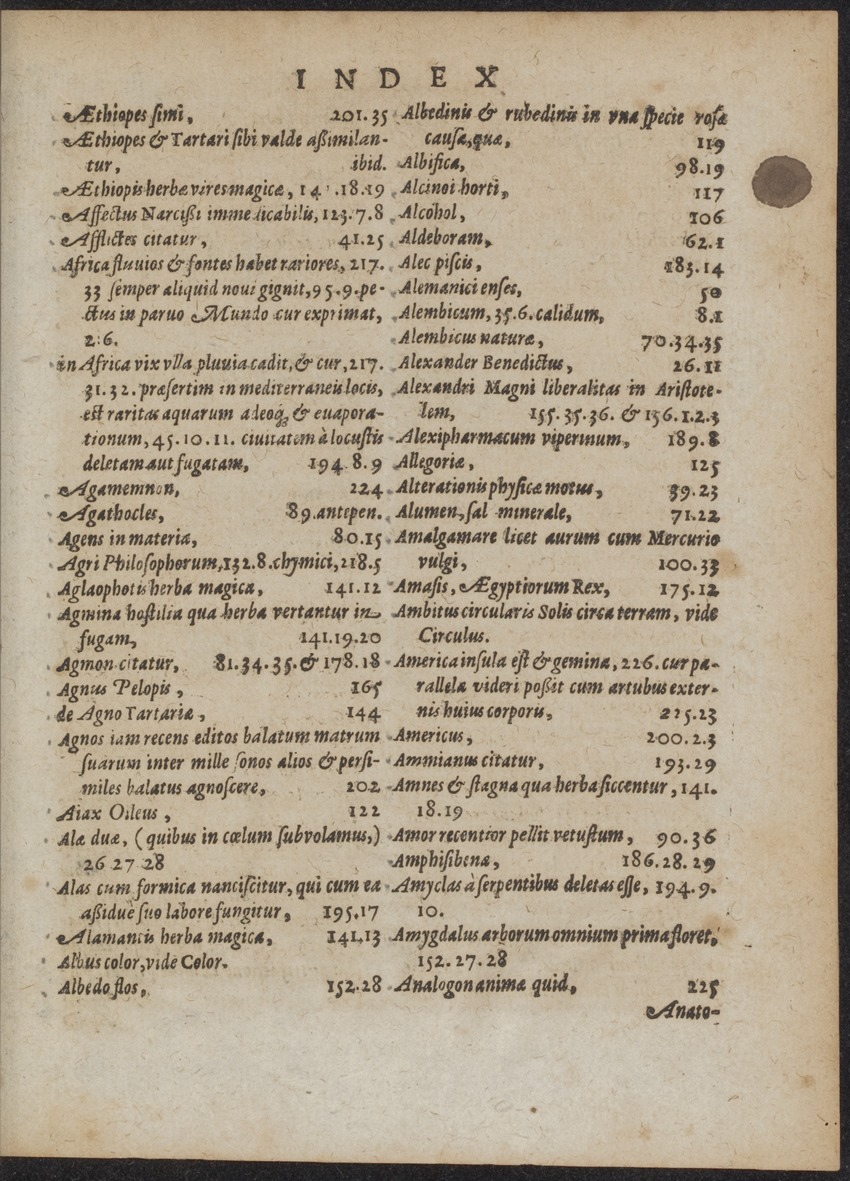 INDEX
Æthiopes simi, 201.35
Æthiopes & Tartari sibi valde aßimilan-
tur, ibid.
Æthiopis herbæ vires magicæ, 141.18.19
Affectus Narcißi immedicabilis, 123.7.8
Afflictes citatur, 41.25
Africa fluuios & fontes habet rariores, 217.
33 semper aliquid noui gignit, 95.9. pe-
ctus in paruo Mundo cur exprimat,
2:6.
in Africa vix vlla pluuia cadit, & cur, 217.
31.32. præsertim in mediterraneis locis,
est raritas aquarum adeoq; & euapora-
tionum, 45.10.11. ciuitatem à locustis
deletam aut fugatam, 194.8.9
Agamemnon, 224
Agathocles, 89. antepen.
Agens in materia, 80.15
Agri Philosophorum, 132.8. chymici, 218.5
Aglaophotis herba magica, 141.12
Agmina hostilia qua herba vertantur in
fugam, 141.19.20
Agmon citatur, 81.34.35. & 178.18
Agnus Pelopis, 165
de Agno Tartariæ, 144
Agnos iam recens editos balatum matrum
suarum inter mille sonos alios & persi-
miles balatus agnoscere, 202
Aiax Oileus, 122
Alæ duæ, (quibus in cœlum subvolamus,)
26 27 28
Alas cum formica nanciscitur, qui cum ea
aßiduè suo labore fungitur, 195.17
Alamantis herba magica, 141.13
Albus color, vide Color.
Albedo flos, 152.28
Albedinis & rubedinis in vna specie rosæ
causa, quæ, 119
Albifica, 98.19
Alcinoi horti, 117
Alcohol, 106
Aldeboram, 62.1
Alec piscis, 183.14
Alemanici enses, 50
Alembicum, 35.6. calidum, 8.1
Alembicus naturæ, 70.34.35
Alexander Benedictus, 26.11
Alexandri Magni liberalitas in Aristote-
lem, 155.35.36. & 156.1.2.3
Alexipharmacum viperinum, 189.8
Allegoriæ, 125
Alterationis physicæ motus, 39.23
Alumen, sal minerale, 71.22
Amalgamare licet aurum cum Mercurio
vulgi, 100.33
Amasis, Ægyptiorum Rex, 175.12
Ambitus circularis Solis circa terram, vide
Circulus.
America insula est & gemina, 226. cur pa-
rallela videri poßit cum artubus exter-
nis huius corporis, 225.23
Americus, 200.2.3
Ammianus citatur, 193.29
Amnes & stagna qua herba siccentur, 141.
18.19
Amor recentior pellit vetustum, 90.36
Amphisibena, 186.28.29
Amyclas à serpentibus deletas esse, 194.9.
10.
Amygdalus arborum omnium prima floret,
152.27.28
Analogon animæ quid, 225
Anato-